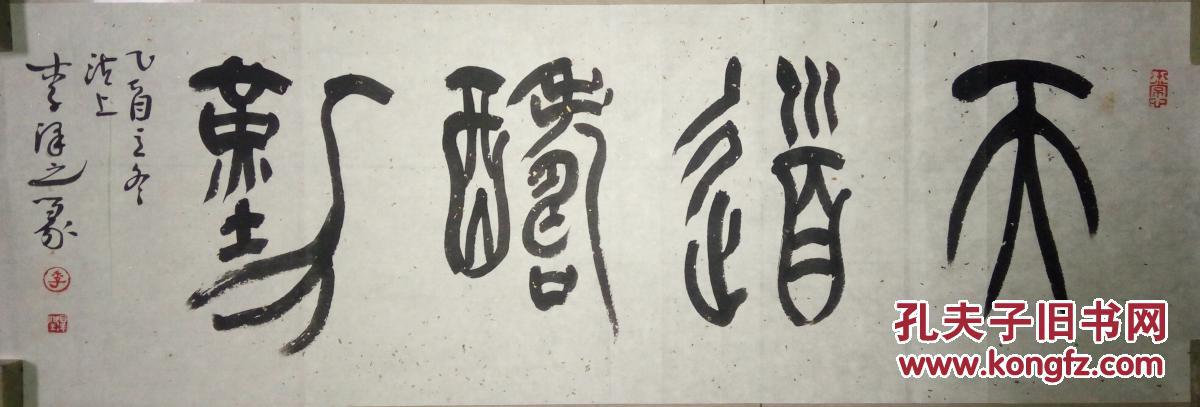 天道醻勤
乙酉立冬
沽上
李泽之篆
平常心
李
孔夫子旧书网
www.kongfz.com